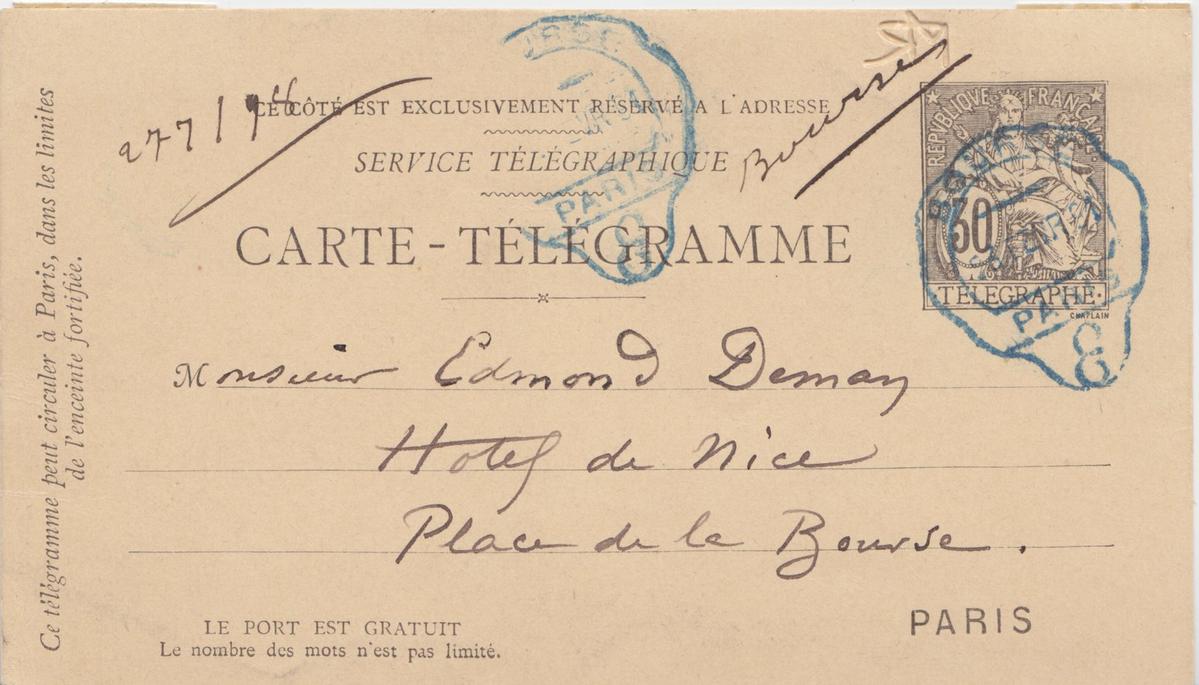 277/94
Bourse
CE CÔTÉ EST EXCLUSIVEMENT RÉSERVÉ A L'ADRESSE
SERVICE TÉLÉGRAPHIQUE
CARTE-TÉLÉGRAMME
REPUBLIQUE FRANÇAISE
30
TELEGRAPHE
CHAPLAIN
PARIS
8
PARIS
8
Monsieur Edmond Deman
Hotel de Nice
Place de la Bourse.
PARIS
LE PORT EST GRATUIT
Le nombre des mots n'est pas limité.
Ce télégramme peut circuler à Paris, dans les limites
de l'enceinte fortifiée.